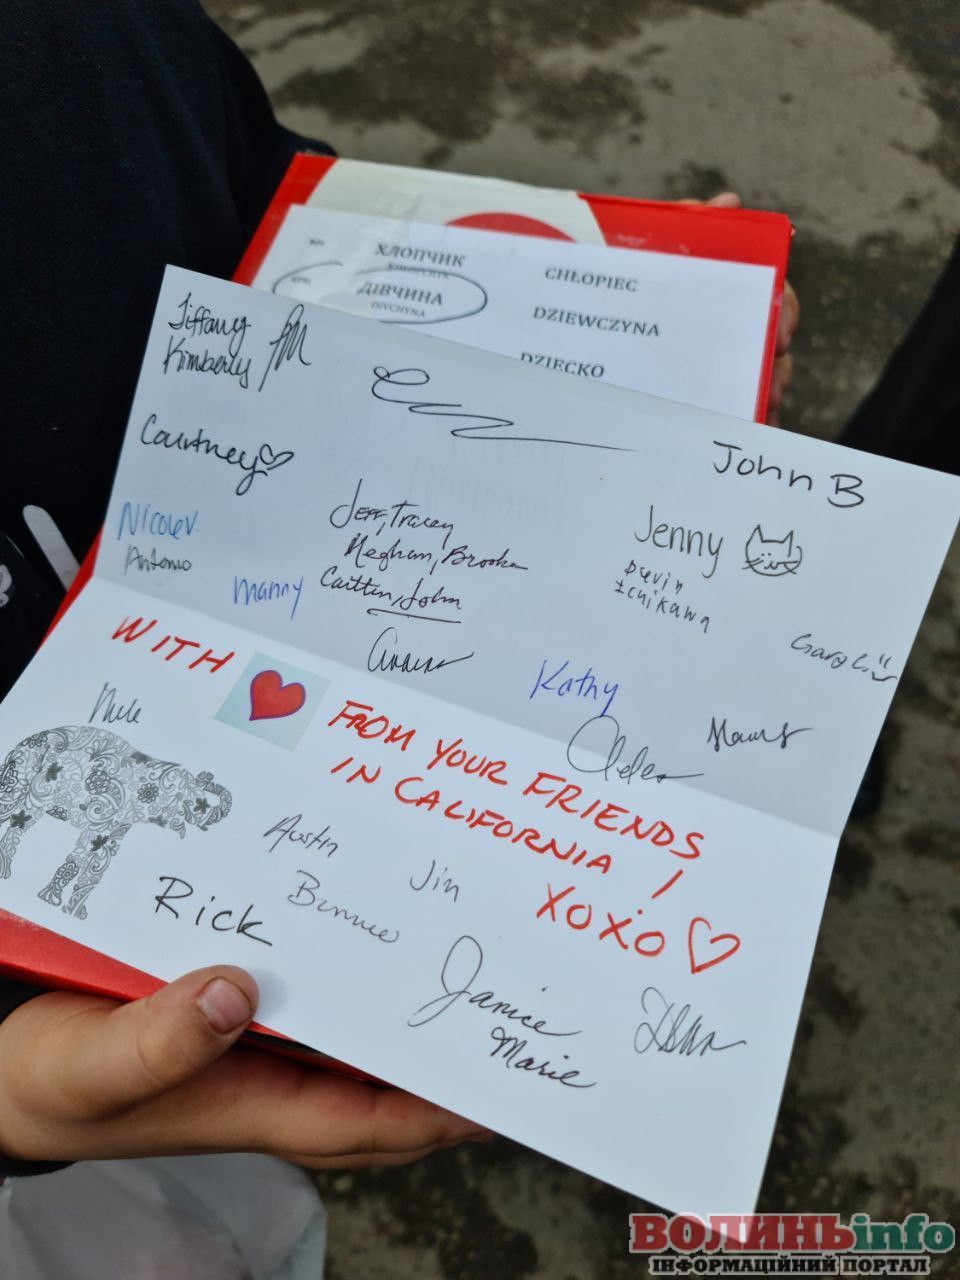 BOY ХЛОПЧИК CHŁOPIEC
KHLOPCHYK
GIRL ДІВЧИНА DZIEWCZYNA
DIVCHYNA
DZIECKO
Tiffany
Kimberly
John B
Courtney
Jenny
Nicole V.
Jeff, Tracey
Meghan, Brooke
Caitlin, John
Devin
Ichikawa
Antonio
Manny
Gary L.
Kathy
WITH
FROM YOUR FRIENDS
IN CALIFORNIA!
XOXO
Austin
Jin
Bonnie
Rick
Janice
Marie
ВОЛИНЬinfo
ІНФОРМАЦІЙНИЙ ПОРТАЛ